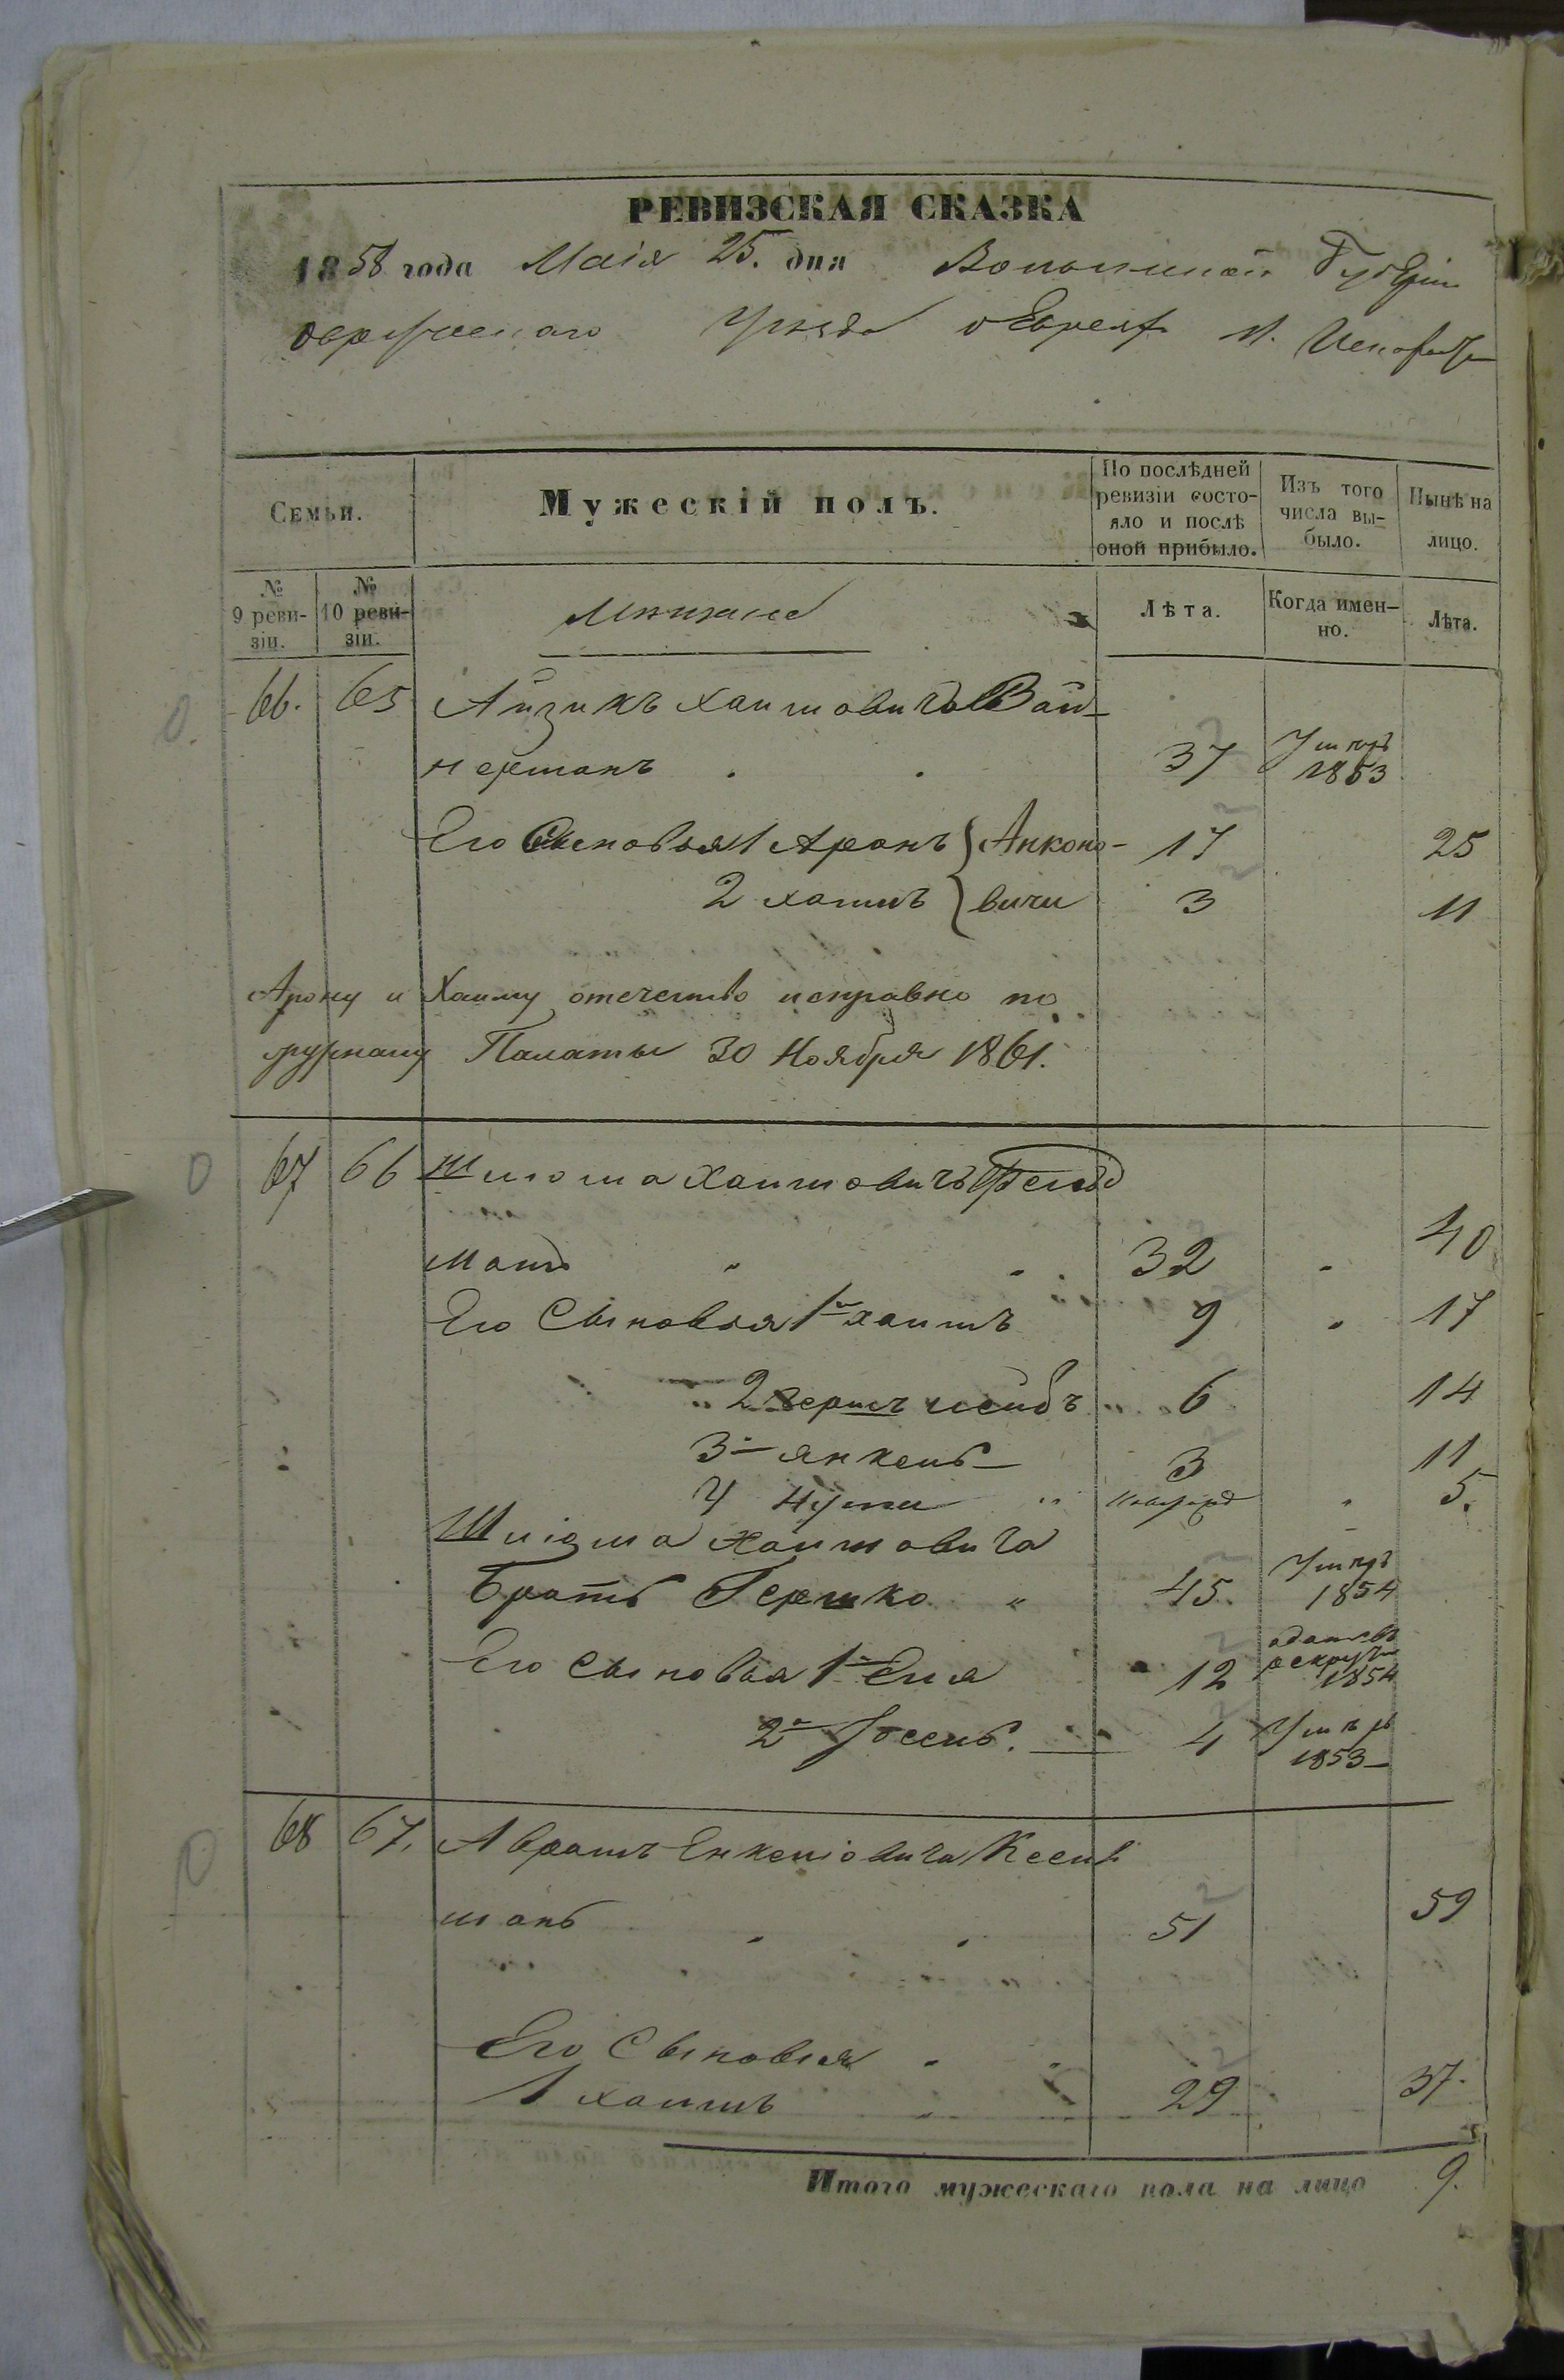 РЕВИЗСКАЯ СКАЗКА
1858 года Маія 25. дня Волынской Губерніи
Овручскаго Уѣзда о Евреяхъ м.
Семьи.
Мужескій полъ.
По послѣдней ревизіи состо-
яло и послѣ
оной прибыло.
Изъ того
числа вы-
было.
Нынѣ на
лицо.
№
9 реви-
зіи.
№
10 реви-
зіи.
Мѣщане
Лѣта.
Когда имен-
но.
Лѣта.
66. 65 Айзикъ Хаимовичъ Вай-
нерманъ 37 Умеръ 1853
Его Сыновья 1 Аронъ } Анконо- 17 25
2 Хаимъ } вичи 3 11
Арону и Хаиму отечество исправно по
Палаты 30 Ноября 1861.
67 66 Шлюма Хаимовичъ Фельд
манъ 32 40
Его Сыновья 1й Хаимъ 9 17
2 Герш Лейбъ 6 14
3й Янкель 3 11
4 Нута 5.
Шлюма Хаимовича
Братъ Гершко 45. Умеръ 1854
Его Сыновья 1й Еля 12 отданъ въ рекруты 1854
2й Іосель. 4 Умеръ 1853
68 67. Аврамъ Енкеліовичъ Кесель
манъ 51 59
Его Сыновья
1 Хаимъ 29 37.
Итого мужескаго пола на лицо 9.